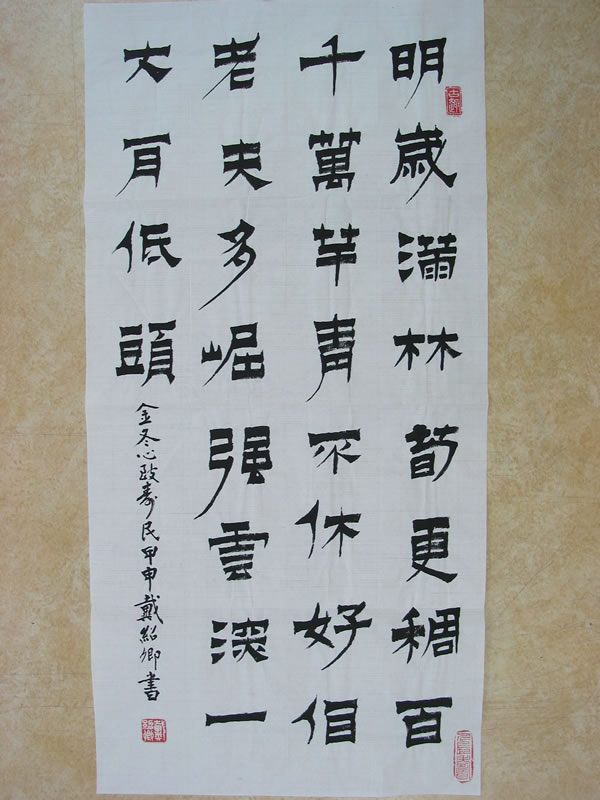 明歲滿林筍更稠百
千萬竿青不休好佀
老夫多崛强雪深一
丈肯低頭
金冬心政壽民甲申戴紹卿書